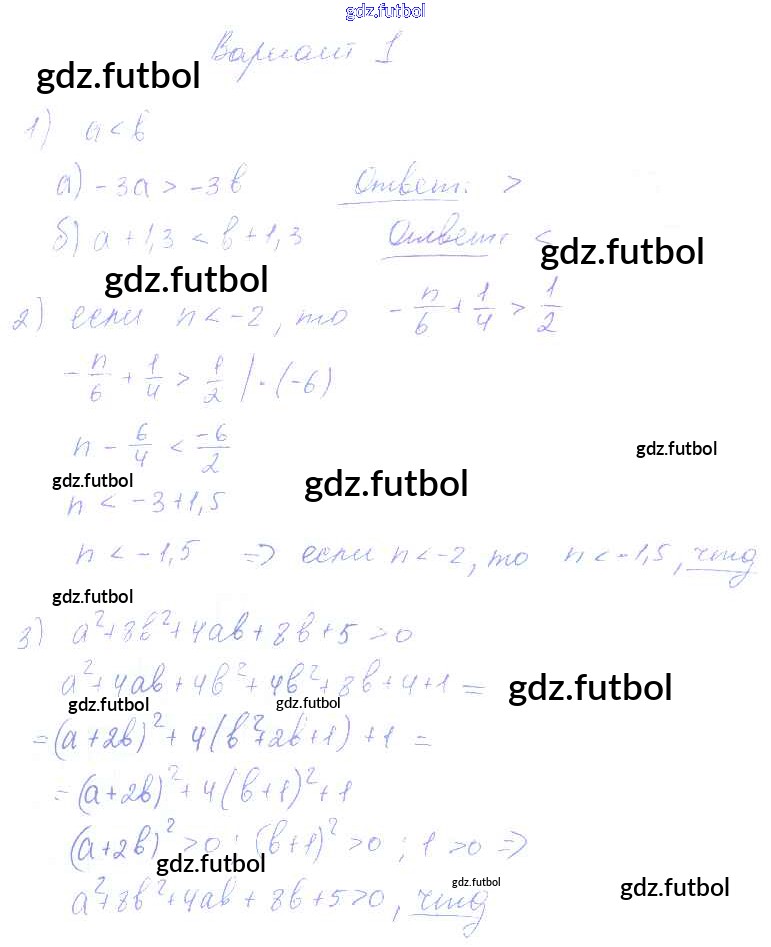 gdz.futbol
Вариант 1
gdz.futbol
1) a < b
а) -3a > -3b Ответ: >
б) a + 1,3 < b + 1,3 Ответ: <
gdz.futbol
gdz.futbol
2) если n < -2, то -n/6 + 1/4 > 1/2
-n/6 + 1/4 > 1/2 | · (-6)
n - 6/4 < -6/2
gdz.futbol
gdz.futbol gdz.futbol
n < -3 + 1,5
n < -1,5 => если n < -2, то n < -1,5, чтд
gdz.futbol
3) a² + 8b² + 4ab + 8b + 5 > 0
a² + 4ab + 4b² + 4b² + 8b + 4 + 1 =
gdz.futbol
gdz.futbol gdz.futbol
= (a + 2b)² + 4(b² + 2b + 1) + 1 =
= (a + 2b)² + 4(b + 1)² + 1
(a + 2b)² > 0; (b + 1)² > 0; 1 > 0 =>
gdz.futbol
a² + 8b² + 4ab + 8b + 5 > 0, чтд
gdz.futbol
gdz.futbol